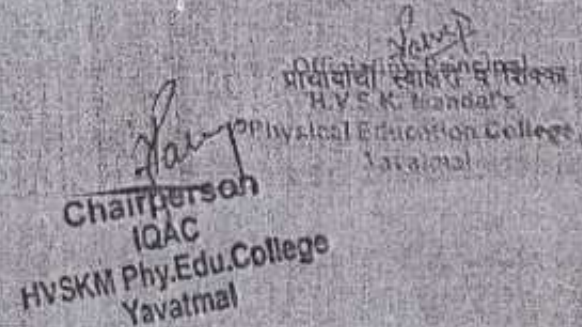 प्राचार्यांची स्वाक्षरी व शिक्का
H.V.S.K. Mandal's
Physical Education College
Yavatmal
Chairperson
IQAC
HVSKM Phy.Edu.College
Yavatmal